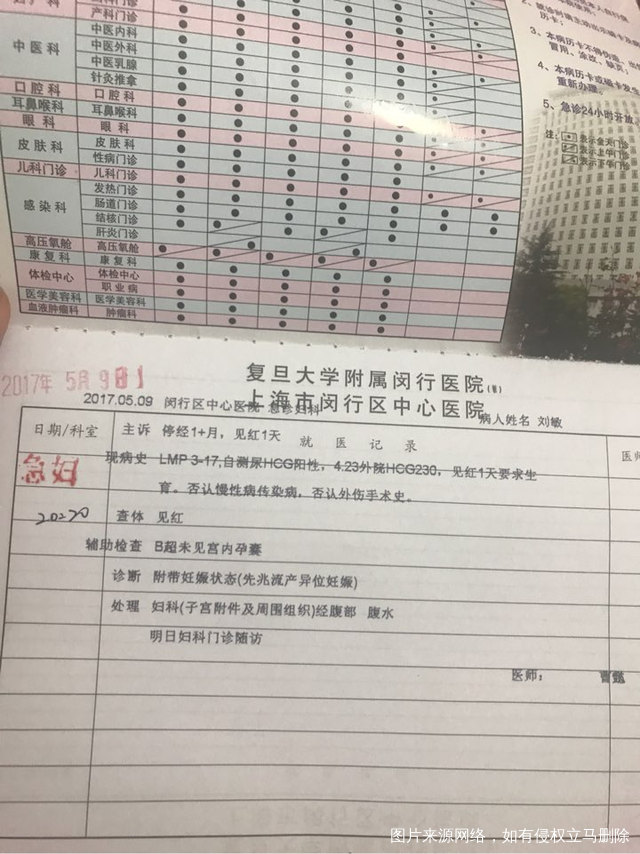 产科门诊
中医科
中医内科
中医外科
中医乳腺
针灸推拿
口腔科 口腔科
耳鼻喉科 耳鼻喉科
眼科 眼科
皮肤科
皮肤科
性病门诊
儿科门诊 儿科门诊
感染科
发热门诊
肠道门诊
结核门诊
肝炎门诊
高压氧舱 高压氧舱
康复科 康复科
体检中心
体检中心
职业病
医学美容科 医学美容科
血液肿瘤科 肿瘤科
历卡。
3、本病历卡不得伪造、
冒用、涂改、缺页，
4、本病历卡或磁卡发生
重新办理。
5、急诊24小时开放
注：表示全天门诊
表示上午门诊
表示下午门诊
复旦大学附属闵行医院(筹)
2017年 5月 9日
上海市闵行区中心医院
2017.05.09 闵行区中心医院 急诊妇科
病人姓名 刘敏
就医记录
日期/科室
医师
主诉 停经1+月，见红1天
急妇
现病史 LMP 3-17,自测尿HCG阳性，4.23外院HCG230，见红1天要求生
育。否认慢性病传染病，否认外伤手术史。
查体 见红
辅助检查 B超未见宫内孕囊
诊断 附带妊娠状态(先兆流产异位妊娠)
处理 妇科(子宫附件及周围组织)经腹部 腹水
明日妇科门诊随访
医师：
图片来源网络，如有侵权立马删除